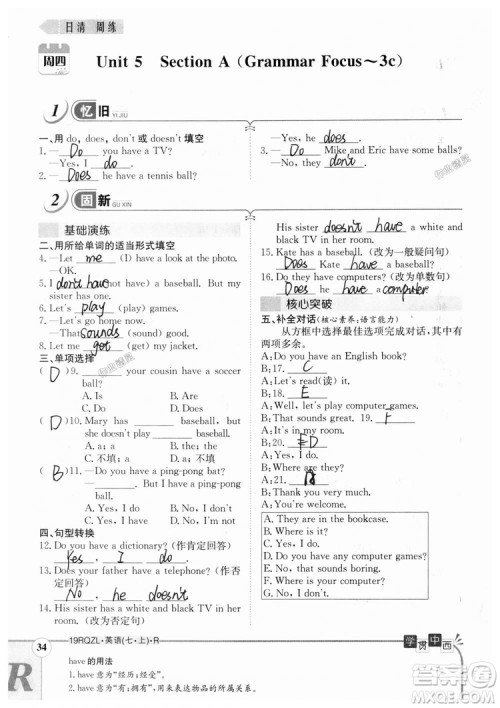 日清 周练
周四
Unit 5 Section A（Grammar Focus～3c）
1 忆旧 YI JIU
一、用 do, does, don't 或 doesn't 填空
1. —Do you have a TV?
—Yes, I do.
2. —Does he have a tennis ball?
—Yes, he does.
3. —Do Mike and Eric have some balls?
—No, they don't.
2 固新 GU XIN
基础演练
二、用所给单词的适当形式填空
4. —Let me (I) have a look at the photo.
—OK.
5. I don't have (not have) a baseball. But my
sister has one.
6. Let's play (play) games.
7. —Let's go home now.
—That sounds (sound) good.
8. Let me get (get) my jacket.
三、单项选择
( D )9. — your cousin have a soccer
ball?
A. Is B. Has
C. Do D. Does
( D )10. Mary has baseball, but she
doesn't have baseball bat.
A. a; a B. a; 不填
C. 不填; a D. 不填; 不填
( B )11. —Do you have a ping-pong bat?
— . And I have a ping-pong
ball, too.
A. Yes, I am B. Yes, I do
C. No, I don't D. No, I'm not
四、句型转换
12. Do you have a dictionary? (作肯定回答)
Yes, I do.
13. Does your father have a telephone? (作否
定回答)
No, he doesn't.
14. His sister has a white and black TV in her
room. (改为否定句)
His sister doesn't have a white and
black TV in her room.
15. Kate has a baseball. (改为一般疑问句)
Does Kate have a baseball?
16. Do they have computers? (改为单数句)
Does he have a computer?
核心突破
五、补全对话（核心素养:语言能力）
从方框中选择最佳选项完成对话,其中有
两项多余。
A: Do you have an English book?
B: 17. C
A: Let's read(读) it.
B: 18. E
A: Well, let's play computer games.
B: That sounds great. 19. F
A: Yes, I do.
B: 20. D
B: Where are they?
A: 21. A
B: Thank you very much.
A: You're welcome.
A. They are in the bookcase.
B. Where is it?
C. Yes, I do.
D. I don't have any computer games.
E. That sounds boring.
F. Do you have a computer?
G. Do you have computer games?
34
19RQZL·英语(七·上)·R
学贯中西
R
have 的用法
1. have 意为“经历;经受”。
2. have 意为“有;拥有”,用来表达物品的所属关系。